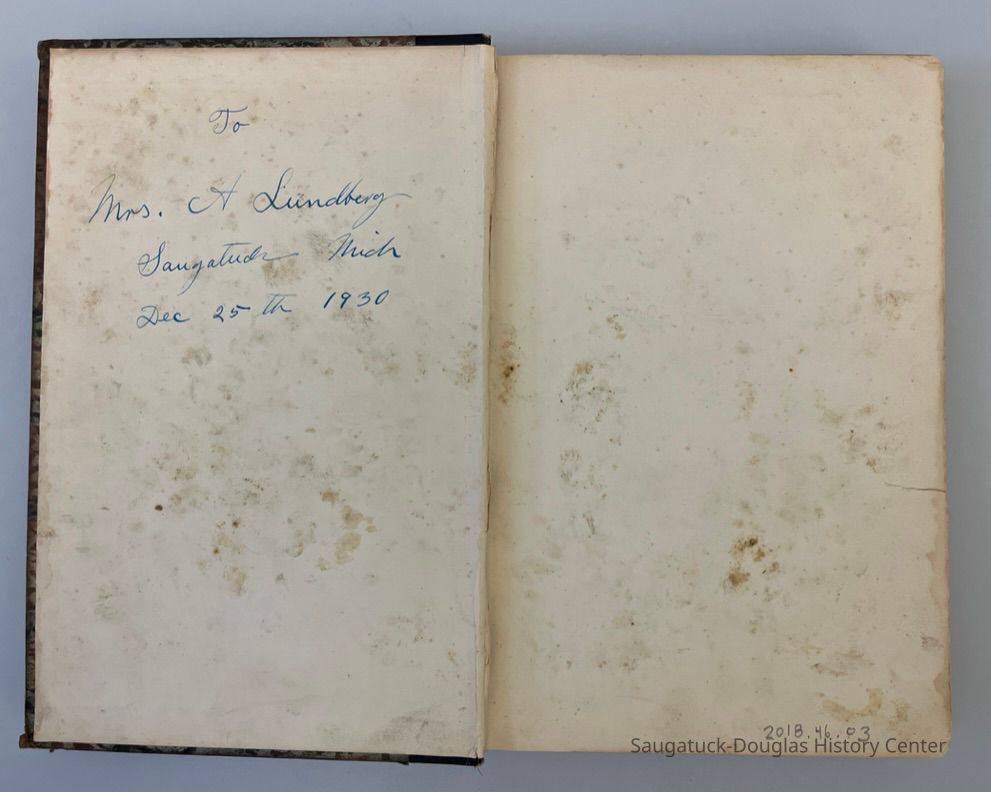 To
Mrs. A Lundberg
Saugatuck Mich
Dec 25 th 1930
2018.46.03
Saugatuck-Douglas History Center